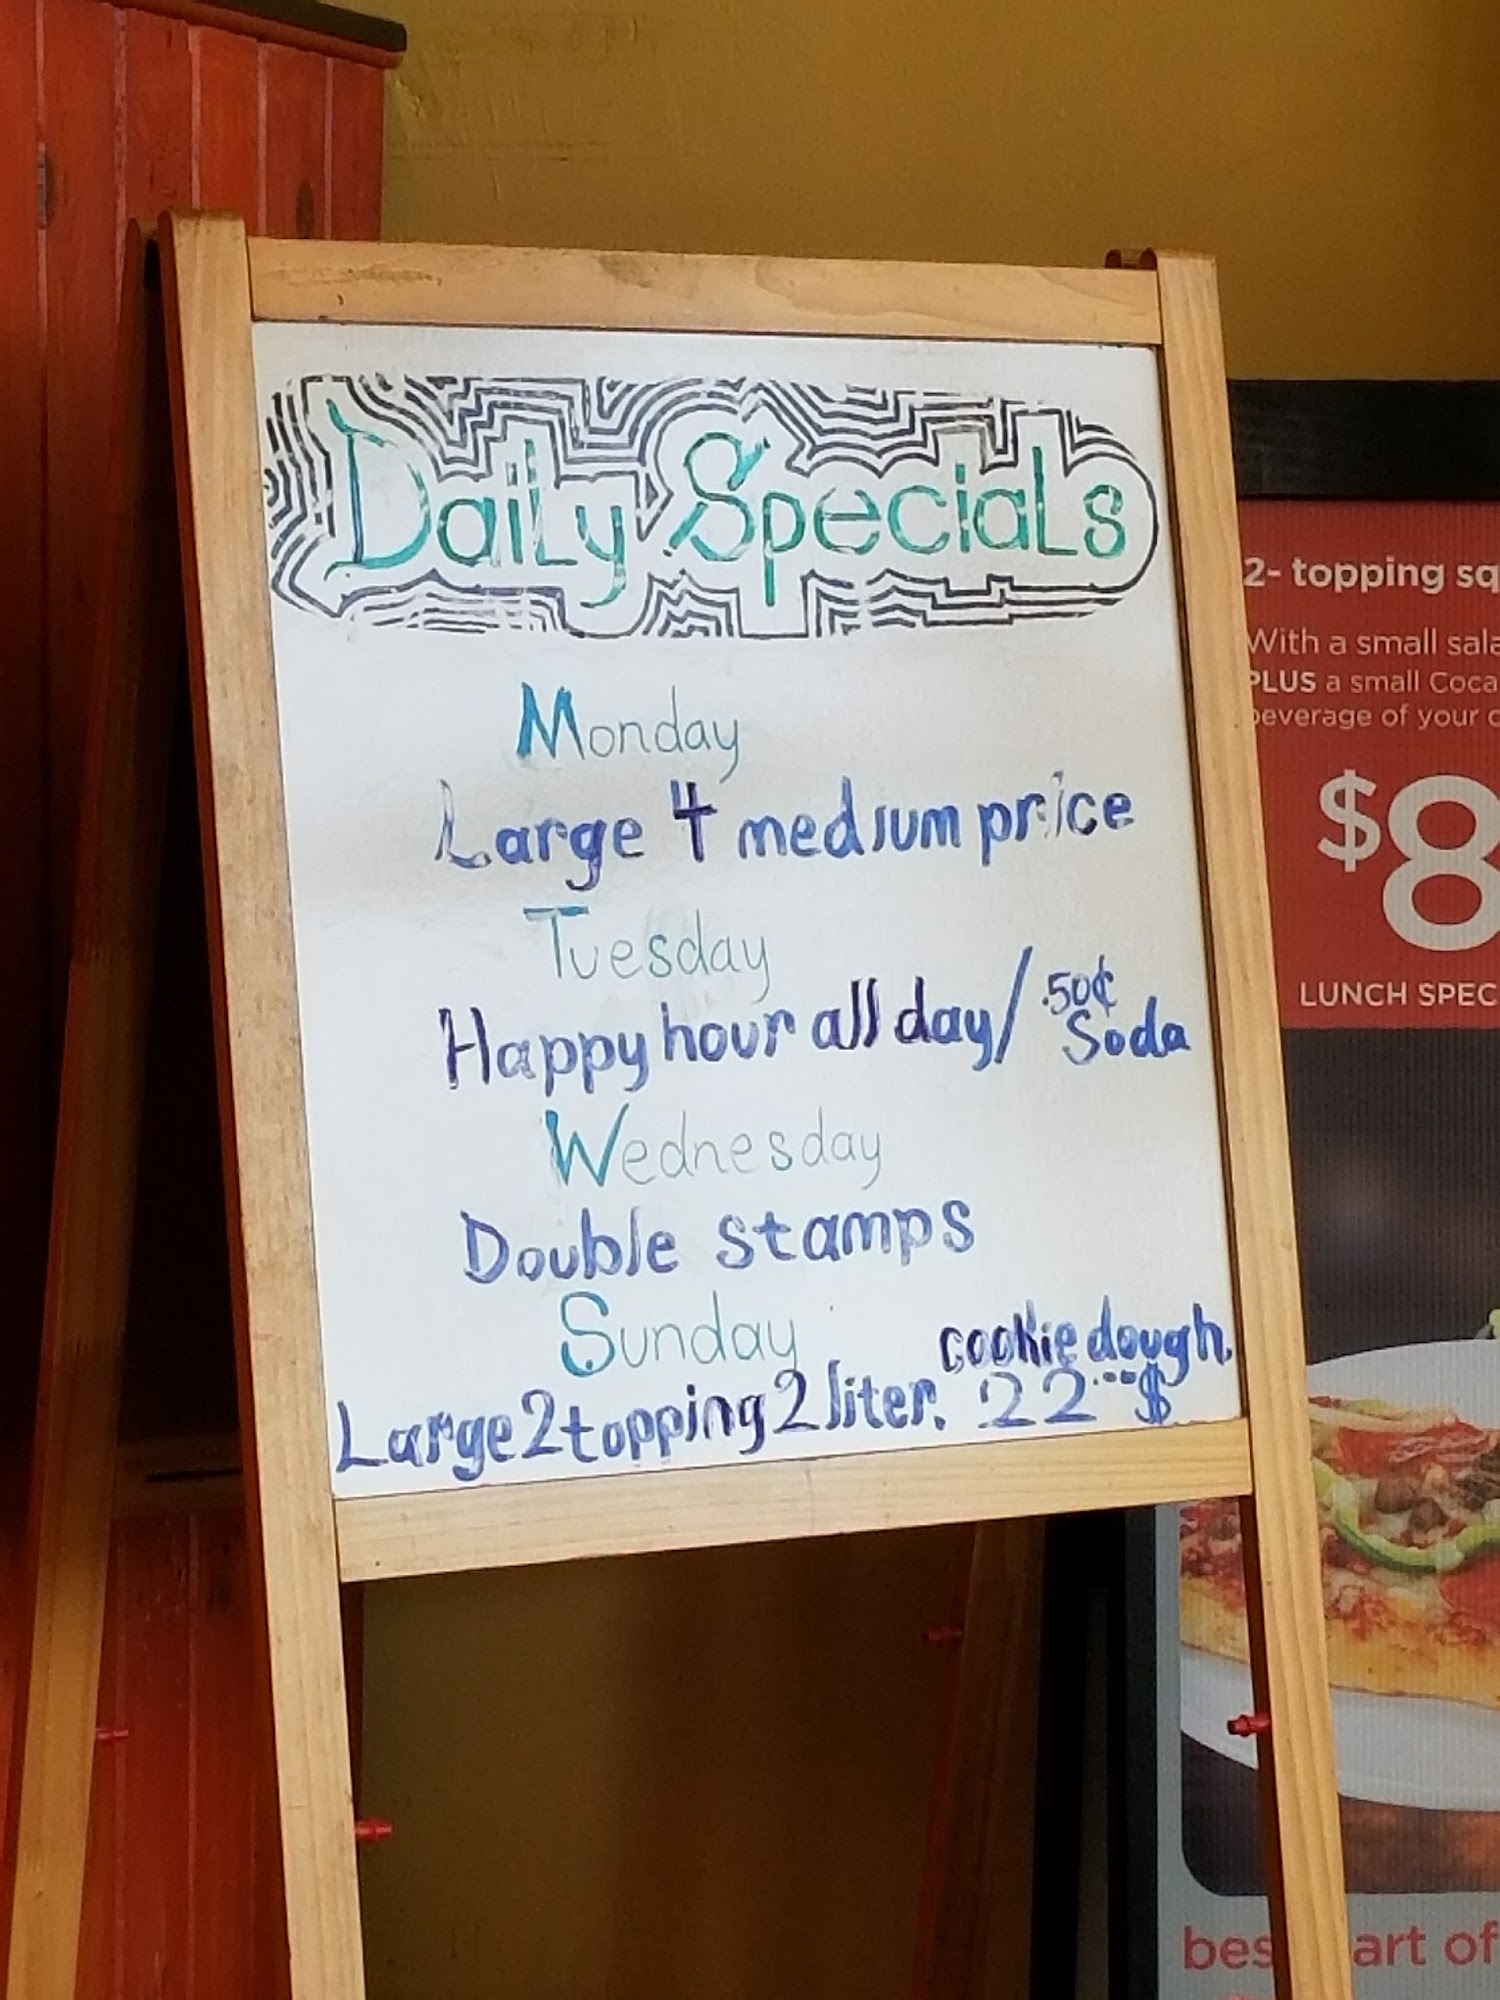 Daily Specials
Monday
Large 4 medium price
Tuesday
Happy hour all day/ .50¢ Soda
Wednesday
Double stamps
Sunday
cookie dough.
Large 2 topping 2 liter. 22...$
2- topping sq
With a small sala
PLUS a small Coca
beverage of your
$8
LUNCH SPEC
art of